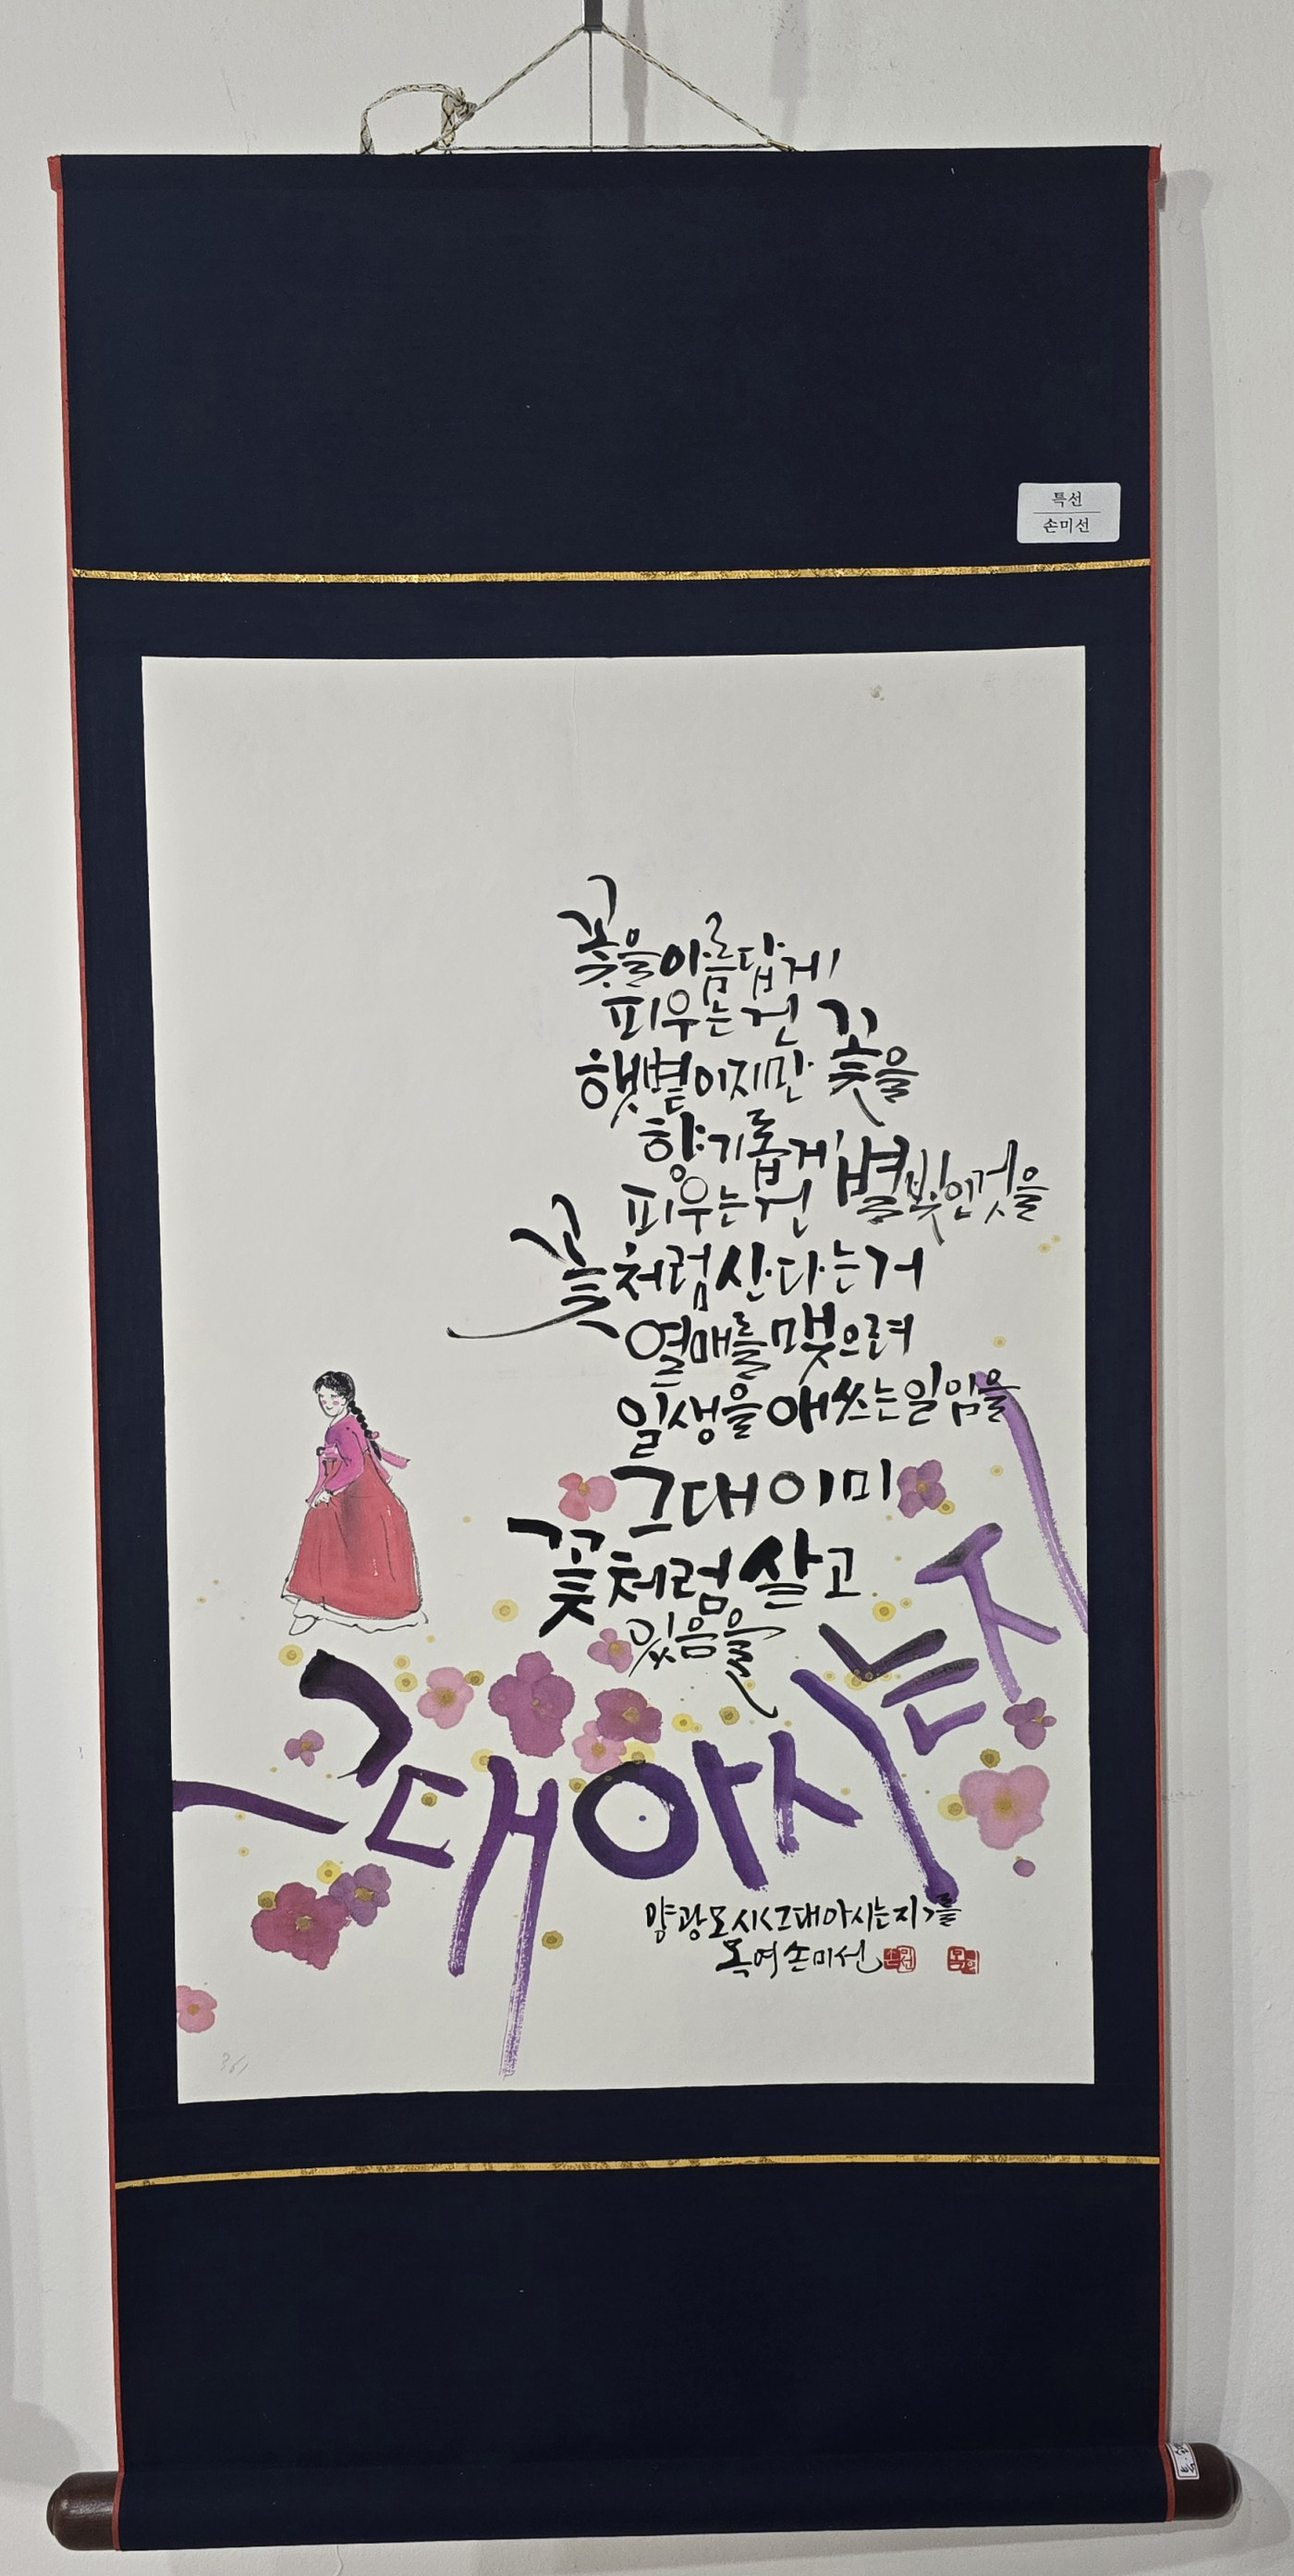 특선
손미선
꽃을 아름답게
피우는 건
햇볕이지만 꽃을
향기롭게
피우는 건 별빛인 것을
꽃처럼 산다는 거
열매를 맺으려
일생을 애쓰는 일임을
그대 이미
꽃처럼 살고
있음을
그대 아시는지
양광모 시<그대 아시는지>를
손미선